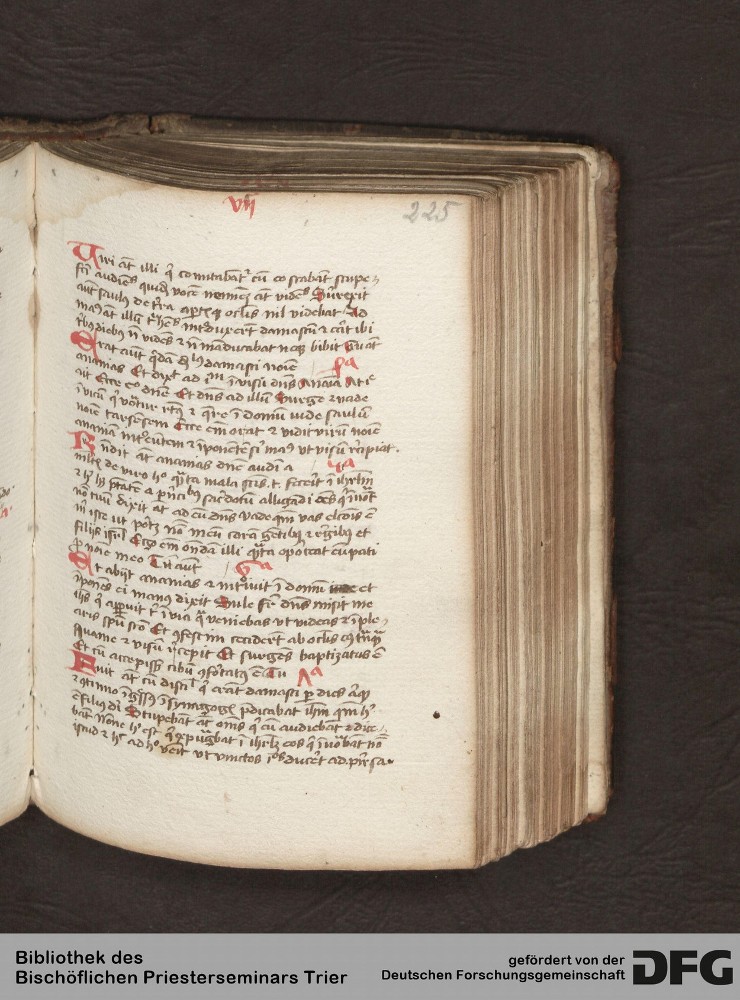 vij
225
Uiri at illi q comitabat cu eo stabat stupe
fti audietes quid voce neminē at vides Surexit
aut saulus de terra aptisq oclis nil videbat Ad
man at illu thetes introduxert damascu & erat ibi
tbus diebus n vides & n manducabat neq bibit Erat
Erat aut qda disls damasci noie ta
ananias Et dixt ad illu i visu dns Anania At ille
ait Ecce ego dne Et dns ad illu Surge & vade
i vicu q vocatur rtus & qre i domu iude saulu
noie tarsensem Ecce em orat & vidit viru noie
anania introeuntem & iponente si man ut visu recipiat
Rndit at ananias dne audiui a
mltis de viro hoc quata mala scis t fecerit i ihrlm
& hic hz ptate a pncibus sacdotu alligadi oes q iuocat
nome tuu dixit at ad eu dns vade qm vas elcois e
m iste ut portz nome meu cora getibus & regibus et
filijs isrl Ego em ondam illi quata oporteat eu pati
p noie meo Tu aut
Et abijt ananias & introiuit i domu et
iponens ei manus dixit Saule fr dns misit me
ihs q apparuit t i via qua veniebas ut videas & iple
aris spu sco Et confestim ceciderut ab oclis eius tamqua
squame & visu recepit Et surges baptizatus e
Et cu accepisset cibu confortatus e Tu
Fuit at cu discilis q erat damasci p dies aliquot
& cotinuo ingressus i synagogas pdicabat ihm qm hic
e filius di Stupebat at oms q eu audiebat & dice
bat None hic est q expugnabat i ihrlm eos q iuocabat nome
istud & huc ad hoc venit ut vinctos illos duceret ad pncipes sa
Bibliothek des
Bischöflichen Priesterseminars Trier
gefördert von der
Deutschen Forschungsgemeinschaft
DFG